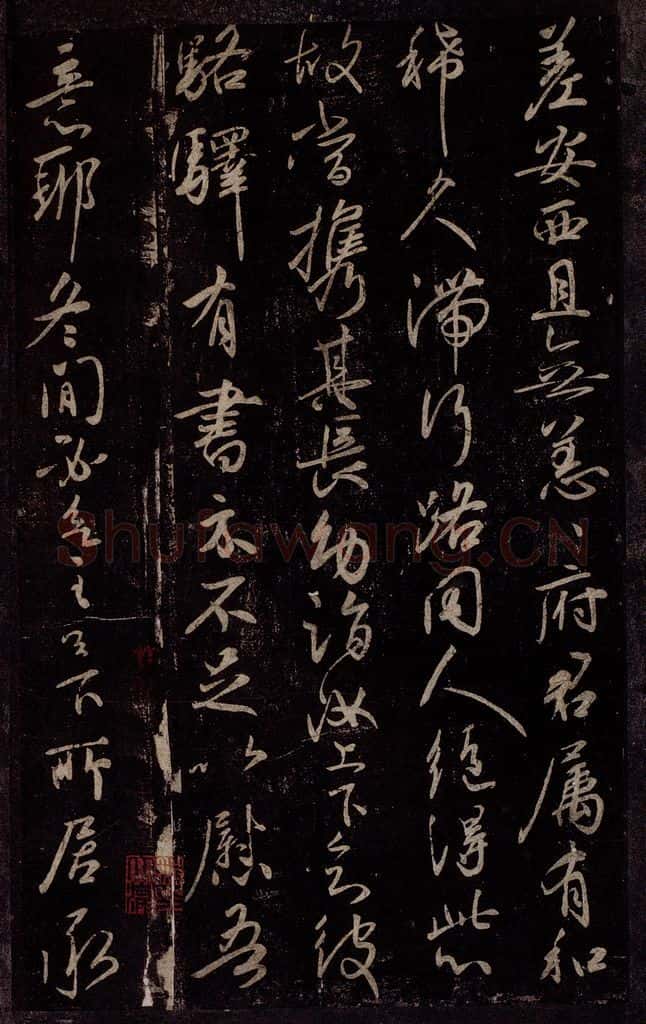 差安西且無恙〻府君属有和
稀久滞行路同人得
故當攜其長幼詣汝上下彼
駱驛有書示不足以慰吾
意耶冬間必下所居承
Shufawang.CN